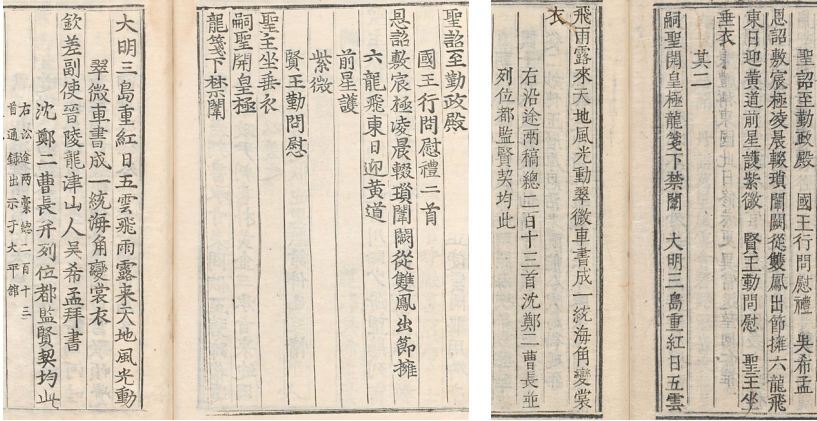 聖詔至勤政殿
國王行問慰禮二首
恩詔敷宸極凌晨輟瑣闈闕從雙鳳出節擁
六龍飛東日迎黃道
前星護
紫微
賢王勤問慰
聖主坐垂衣
嗣聖開皇極
龍箋下禁闈
大明三島重紅日五雲飛雨露来天地風光動
翠微車書成一統海角變裳衣
欽差副使晉陵龍津山人吳希孟拜書
沈鄭二曹長并列位都監賢契均此
右㳂途兩藁總二百十三
首通録出示于大平館
聖詔至勤政殿 國王行問慰禮 吳希孟
恩詔敷宸極凌晨輟瑣闈闕從雙鳳出節擁六龍飛
東日迎黃道前星護紫微 賢王勤問慰 聖王坐
垂衣
其二
嗣聖開皇極龍箋下禁闈 大明三島重紅日五雲
飛雨露來天地風光動翠微車書成一統海角變裳
衣
右沿途兩稿總二百十三首沈鄭二曹長並
列位都監賢契均此